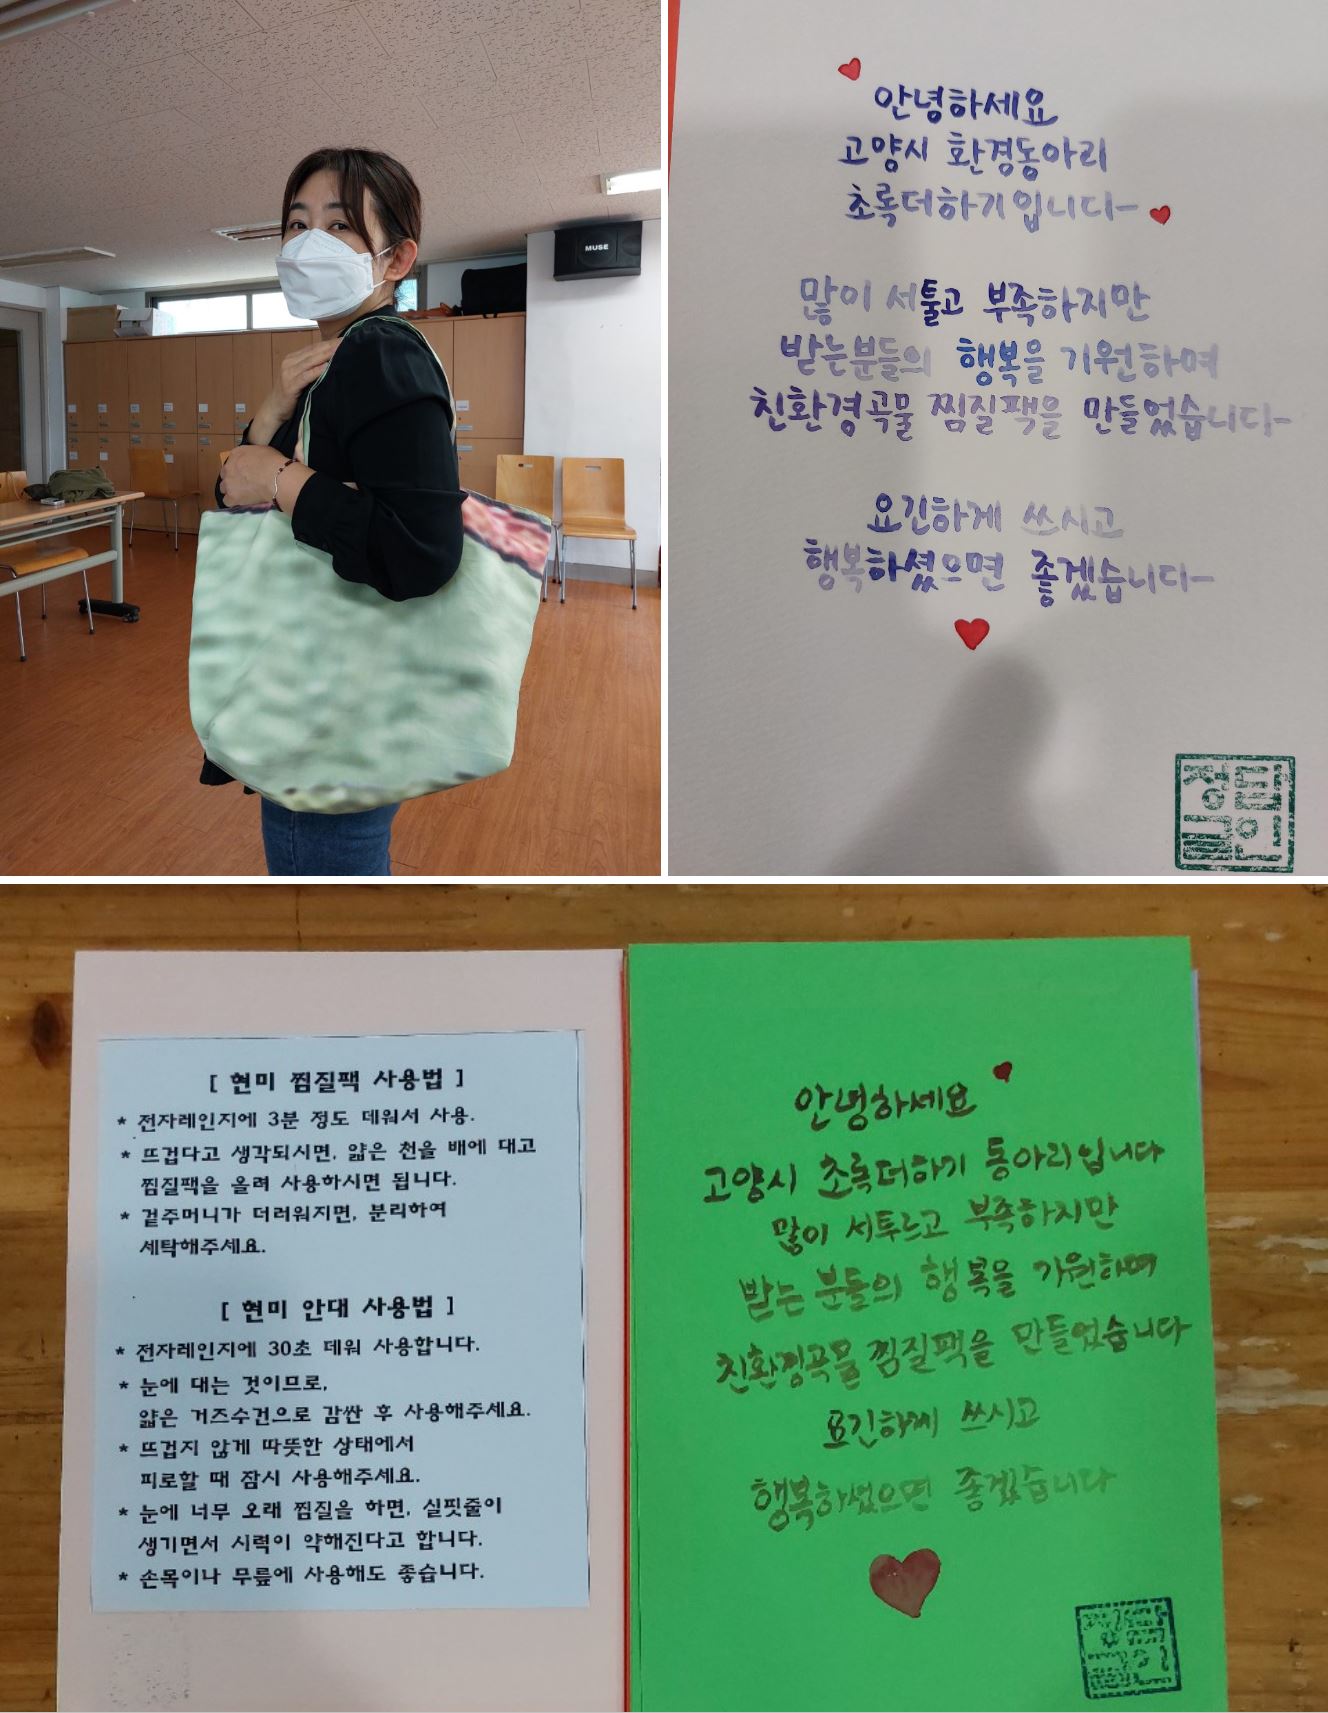 MUSE
안녕하세요
고양시 환경동아리
초록더하기입니다~
많이 서툴고 부족하지만
받는분들의 행복을 기원하며
친환경곡물 찜질팩을 만들었습니다~
요긴하게 쓰시고
행복하셨으면 좋겠습니다~
[ 현미 찜질팩 사용법 ]
* 전자레인지에 3분 정도 데워서 사용.
* 뜨겁다고 생각되시면, 얇은 천을 배에 대고
찜질팩을 올려 사용하시면 됩니다.
* 겉주머니가 더러워지면, 분리하여
세탁해주세요.
[ 현미 안대 사용법 ]
* 전자레인지에 30초 데워 사용합니다.
* 눈에 대는 것이므로,
얇은 거즈수건으로 감싼 후 사용해주세요.
* 뜨겁지 않게 따뜻한 상태에서
피로할 때 잠시 사용해주세요.
* 눈에 너무 오래 찜질을 하면, 실핏줄이
생기면서 시력이 약해진다고 합니다.
* 손목이나 무릎에 사용해도 좋습니다.
안녕하세요
고양시 초록더하기 동아리입니다
많이 서투르고 부족하지만
받는 분들의 행복을 기원하며
친환경곡물 찜질팩을 만들었습니다
요긴하게 쓰시고
행복하셨으면 좋겠습니다